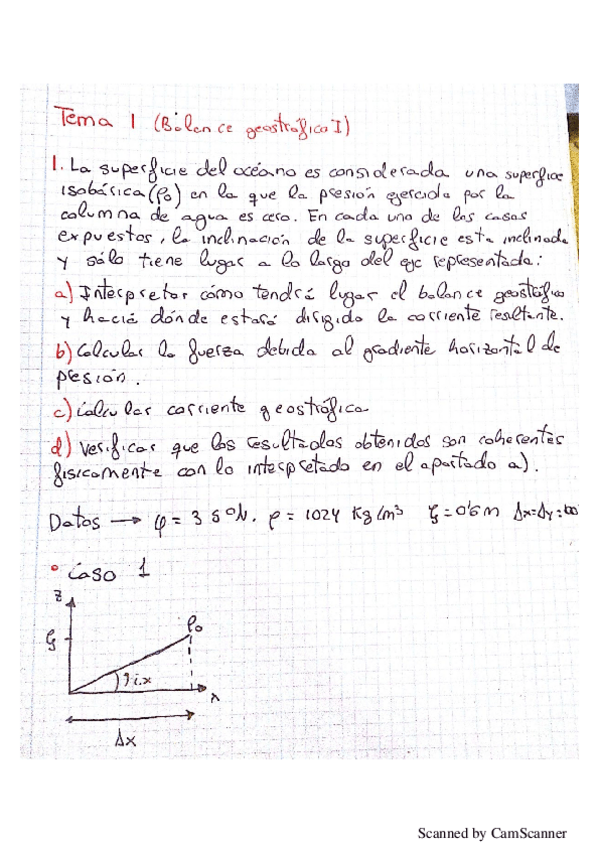 Tema 1 (Balance geostrófico I)
1. La superficie del océano es considerada una superficie
isobárica (ρ₀) en la que la presión ejercida por la
columna de agua es cero. En cada uno de los casos
expuestos, la inclinación de la superficie esta inclinada
y sólo tiene lugar a lo largo del eje representado:
a) Interpretar cómo tendrá lugar el balance geostrófico
y hacia dónde estará dirigido la corriente resultante.
b) Calcular la fuerza debida al gradiente horizontal de
presión.
c) Calcular corriente geostrófica
d) Verificar que los resultados obtenidos son coherentes
fisicamente con lo interpretado en el apartado a).
Datos → φ = 35ºN. ρ = 1024 Kg/m³ ξ = 0'6m Δx=Δy=
• Caso 1
z
ξ
ρ₀
i.x
x
Δx
Scanned by CamScanner